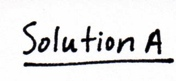 Solution A